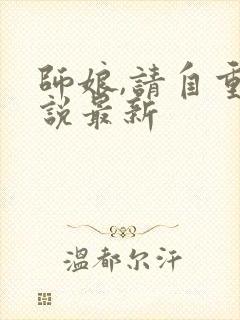 師娘,請自重
說最新
溫都尔汗